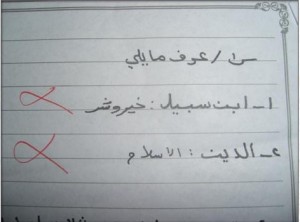 س١/ عرف مايلي
١- ابن سبيل : خيروشر
٢- الدين : الاسلام